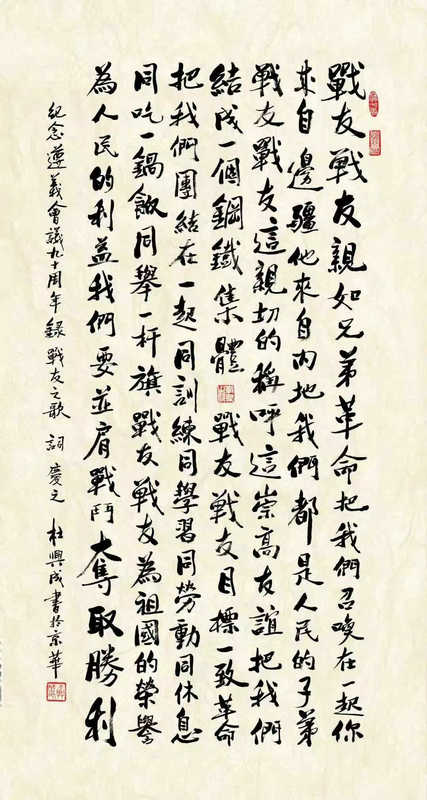 戰友戰友親如兄弟革命把我們召喚在一起你
來自邊疆他來自內地我們都是人民的子弟
戰友戰友這親切的稱呼這崇高友誼把我們
結成一個鋼鐵集體 戰友戰友目標一致革命
把我們團結在一起同訓練同學習同勞動同休息
同吃一鍋飯同舉一杆旗戰友戰友為祖國的榮譽
為人民的利益我們要並肩戰鬥奪取勝利
紀念遵義會議九十周年錄戰友之歌 詞 慶 杜興成書於京華